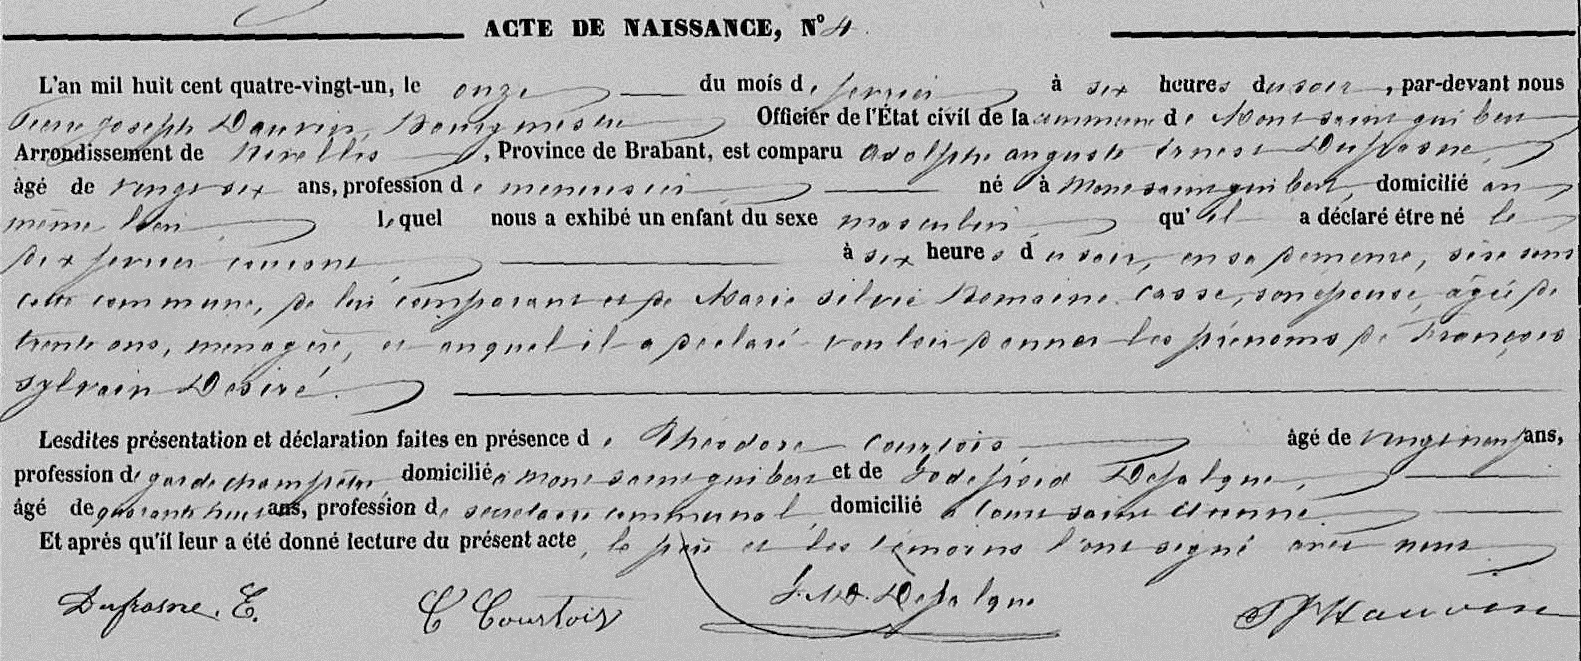 ACTE DE NAISSANCE, N° 4
L'an mil huit cent quatre-vingt-un, le onze du mois de fevrier à six heures du soir, par-devant nous
Pierre Joseph Dauvin, Bourgmestre Officier de l'État civil de la commune de Mont saint guibert
Arrondissement de Nivelles, Province de Brabant, est comparu Adolphe auguste Ernest Dufrasne,
âgé de vingt six ans, profession de menuisier né à Mont saint guibert, domicilié au
même lieu, lequel nous a exhibé un enfant du sexe masculin, qu'il a déclaré être né le
dix fevrier courant, à six heures du soir, en sa demeure, sise sous
cette commune, de lui comparant et de Marie Silvie Romaine Casse, son épouse, âgée de
trente ans, ménagère, et auquel il a déclaré vouloir donner les prénoms de François
Sylvain Désiré.
Lesdites présentation et déclaration faites en présence de Théodore Courtois, âgé de vingt neuf ans,
profession de garde champêtre, domicilié à Mont saint guibert et de Godefroid Defalque,
âgé de quarante huit ans, profession de secrétaire communal, domicilié à Court saint Etienne.
Et après qu'il leur a été donné lecture du présent acte, le père et les témoins l'ont signé avec nous
Dufrasne. E. T Courtois Defalque Dauvin